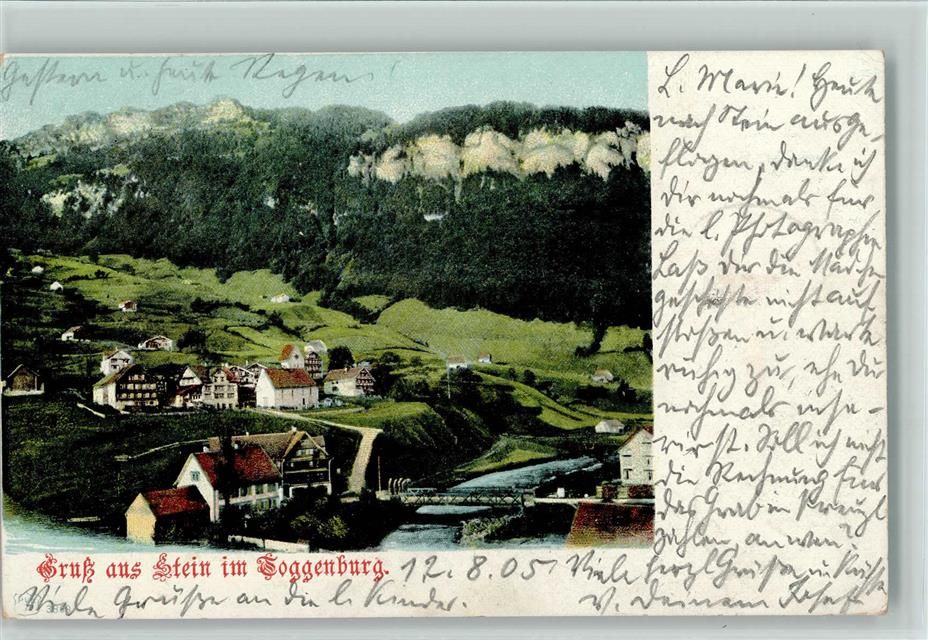 Gestern u. heut Regen!
L. Marie! Heute
nach Stein ausge-
flogen, danke ich
Dir nochmals für
die l. Photographie
Laß der die Mädche
geschichte nicht auf
stoßen u. warte
ruhig zu, ehe Du
nochmals inse-
rirst. Soll ich nicht
die Rechnung für
das Grab in
zahlen
Gruß aus Stein im Toggenburg.
12.8.05. Viele herzl Grüße u. Küsse
Viele Grüße an die l. Kinder.
v. Deinem